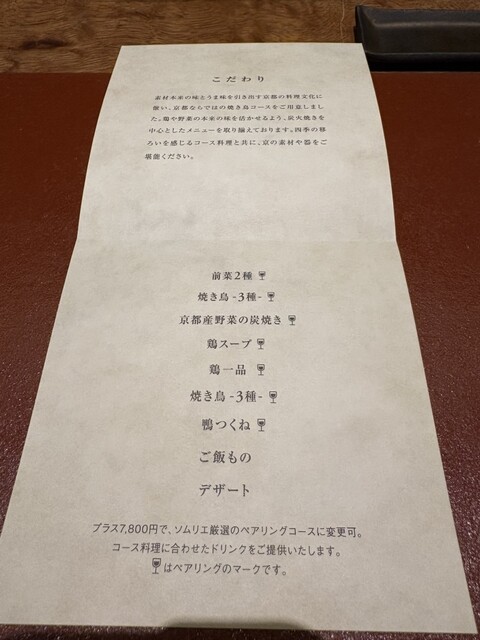 こだわり
素材本来の味とうま味を引き出す京都の料理文化に
倣い、京都ならではの焼き鳥コースをご用意しまし
た。鶏や野菜の本来の味を活かせるよう、炭火焼きを
中心としたメニューを取り揃えております。四季の移
ろいを感じるコース料理と共に、京の素材や器をご
堪能ください。
前菜2種
焼き鳥 -3種-
京都産野菜の炭焼き
鶏スープ
鶏一品
焼き鳥 -3種-
鴨つくね
ご飯もの
デザート
プラス7,800円で、ソムリエ厳選のペアリングコースに変更可。
コース料理に合わせたドリンクをご提供いたします。
はペアリングのマークです。